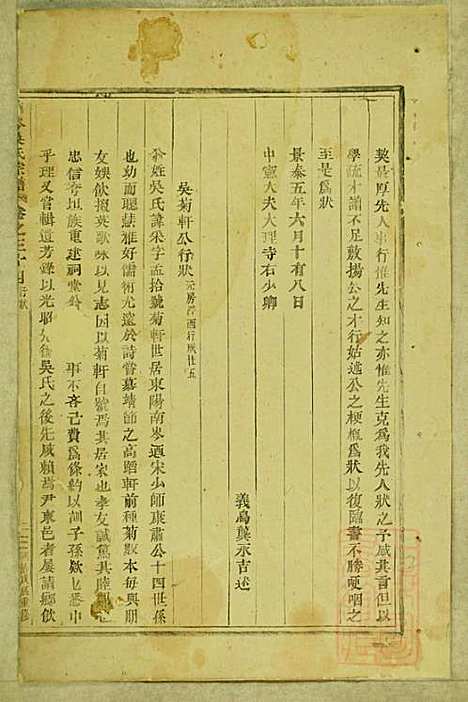 契最厚先人事行惟先生知之亦惟先生克為我先人狀之予感其言但以
學疏才譾不足敷揚公之才行姑述公之梗概為狀以復臨書不勝哽咽之
至是為狀
景泰五年六月十有八日
中憲大夫大理寺右少卿
義烏龔永吉述
吳菊軒公行狀
公姓吳氏諱采字孟拾號菊軒世居東陽南岑迺宋少師康肅公十四世孫
也幼而聰慧雅好儒術尤邃於詩嘗慕靖節之高蹈軒前種菊數本每與朋
友娛飲掇英歌咏以見志因以菊軒自號焉其居家也孝友誠篤其睦
忠信 以族重建祠堂 事不吝己費為條約以訓子孫 悉中
乎理又嘗輯遺芳錄以光昭 吳氏之後先咸賴焉尹東邑者屢請鄉飲
吳氏宗譜 卷之三十四 行狀